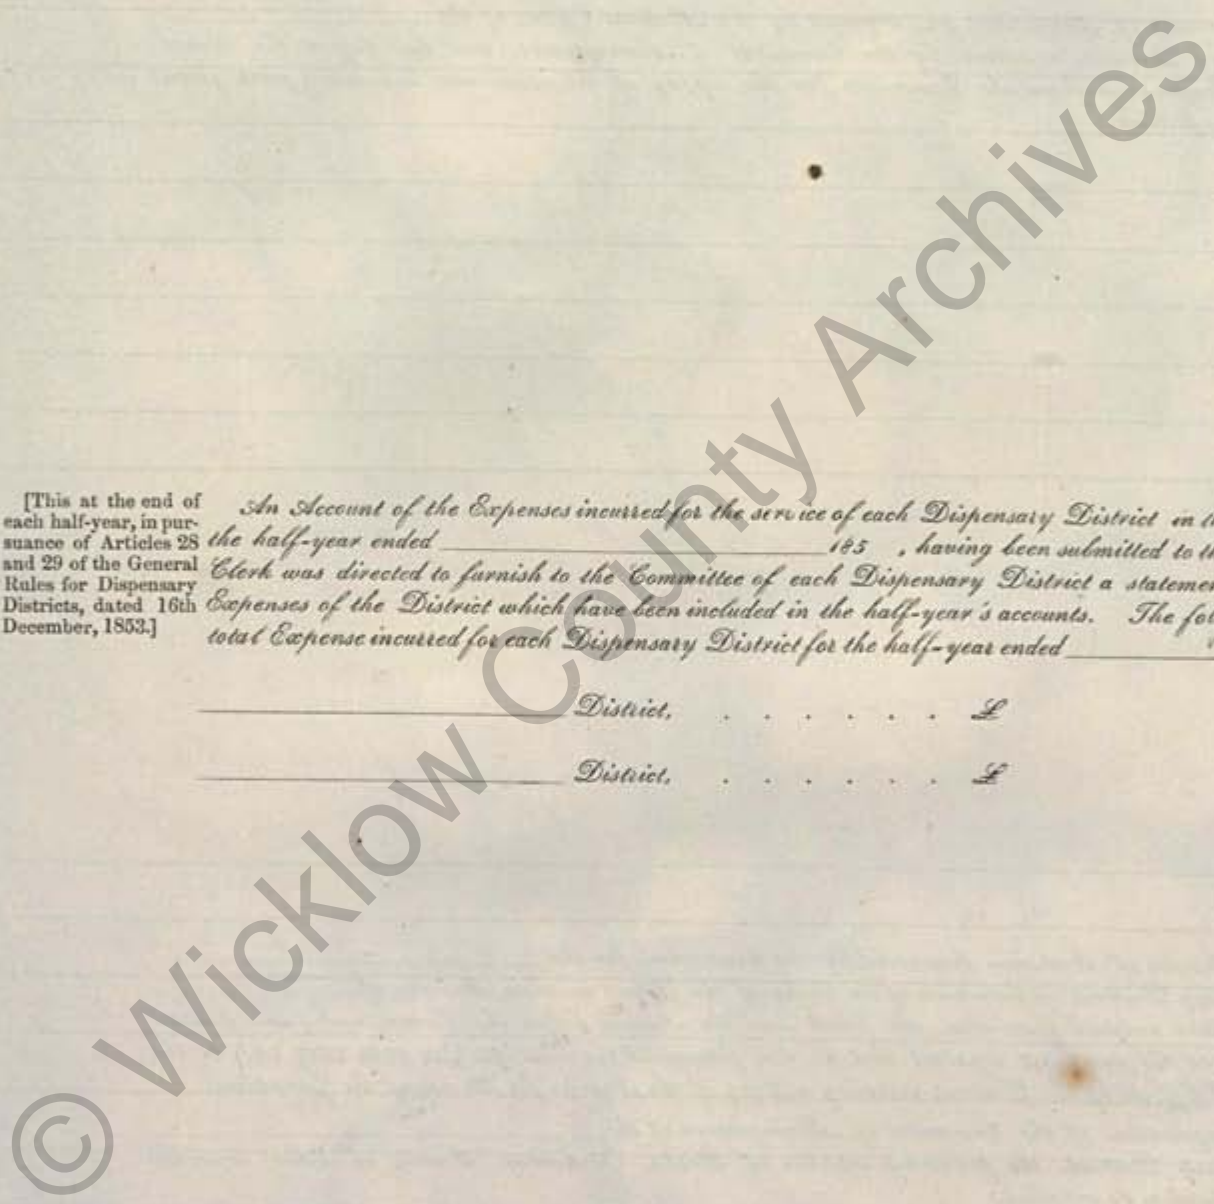 [This at the end of
each half-year, in pur-
suance of Articles 28
and 29 of the General
Rules for Dispensary
Districts, dated 16th
December, 1853.]
An Account of the Expenses incurred for the service of each Dispensary District in
the half-year ended 185 , having been submitted to
Clerk was directed to furnish to the Committee of each Dispensary District a
Expenses of the District which have been included in the half-year's accounts. The
total Expense incurred for each Dispensary District for the half-year ended
District, . . . . . . £
District, . . . . . . £
© Wicklow County Archives